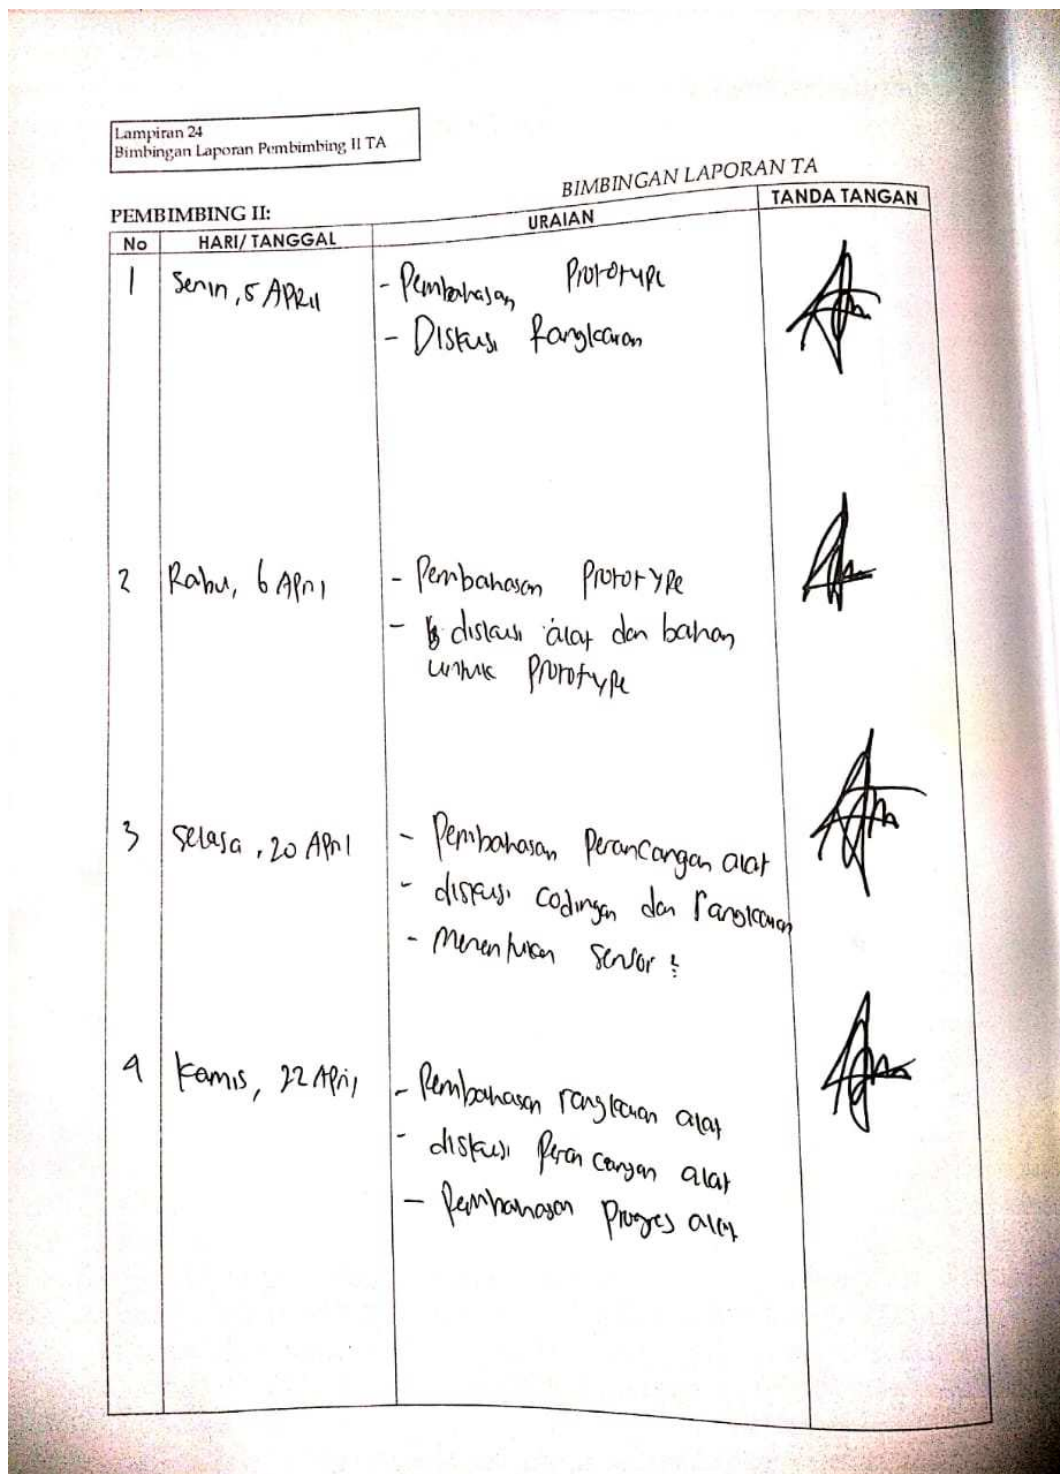 Lampiran 24
Bimbingan Laporan Pembimbing II TA
BIMBINGAN LAPORAN TA
PEMBIMBING II:
No HARI/ TANGGAL URAIAN TANDA TANGAN
1 Senin, 5 APRil - Pembahasan Prototype
- Diskusi Rangkaian
2 Rabu, 6 April - Pembahasan Prototype
- diskusi alat dan bahan
untuk Prototype
3 Selasa, 20 April - Pembahasan Perancangan alat
- diskusi codingan dan rangkaian
- Menentukan sensor
4 Kamis, 22 April - Pembahasan rangkaian alat
- diskusi Perancangan alat
- Pembahasan Progres alat